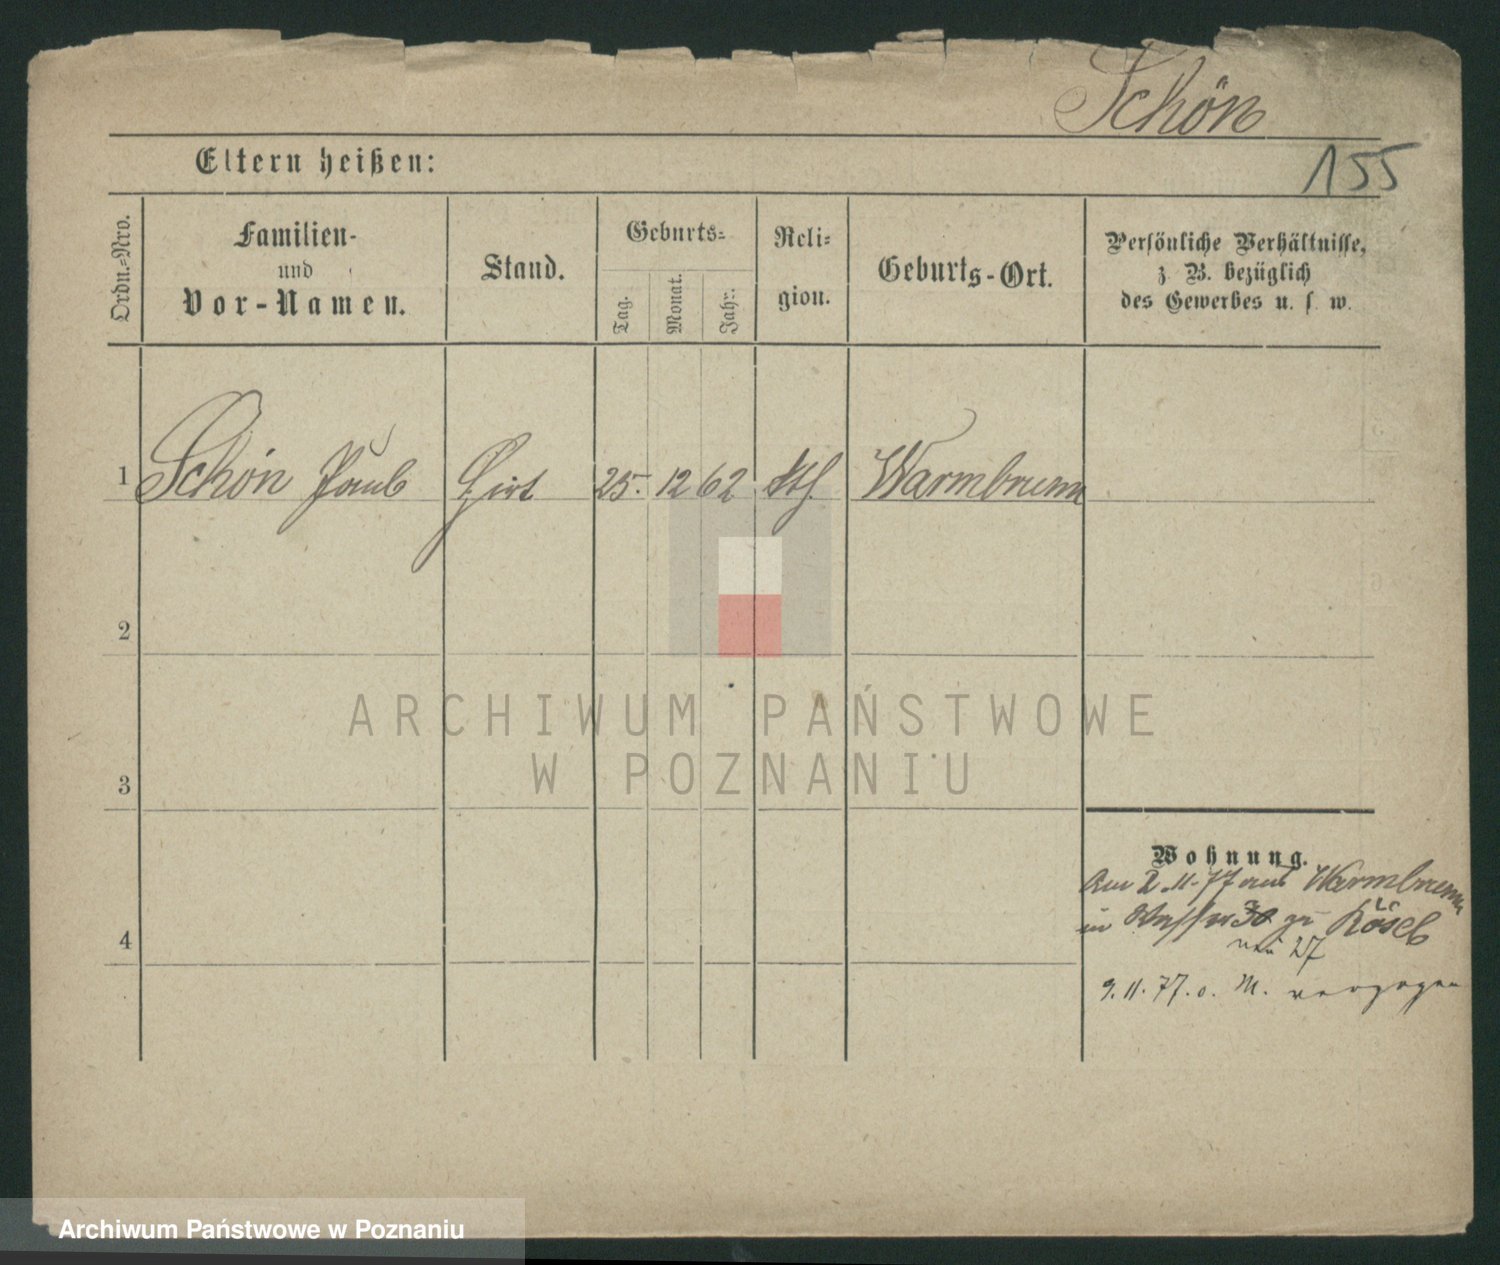 Schön
155
Eltern heißen:
Ordn.-Nro.
Familien-
und
Vor-Namen.
Stand.
Geburts-
Tag.
Monat.
Jahr.
Reli-
gion.
Geburts-Ort.
Persönliche Verhältnisse,
z. B. bezüglich
des Gewerbes u. s. w.
1 Schön Paul 25. 12 62 Warmbrunn
2
ARCHIWUM PAŃSTWOWE
W POZNANIU
3
Wohnung.
Am 2.11.77 aus Warmbrunn
in 30 zu
4
27
9.11.77. n. M. verzogen
Archiwum Państwowe w Poznaniu